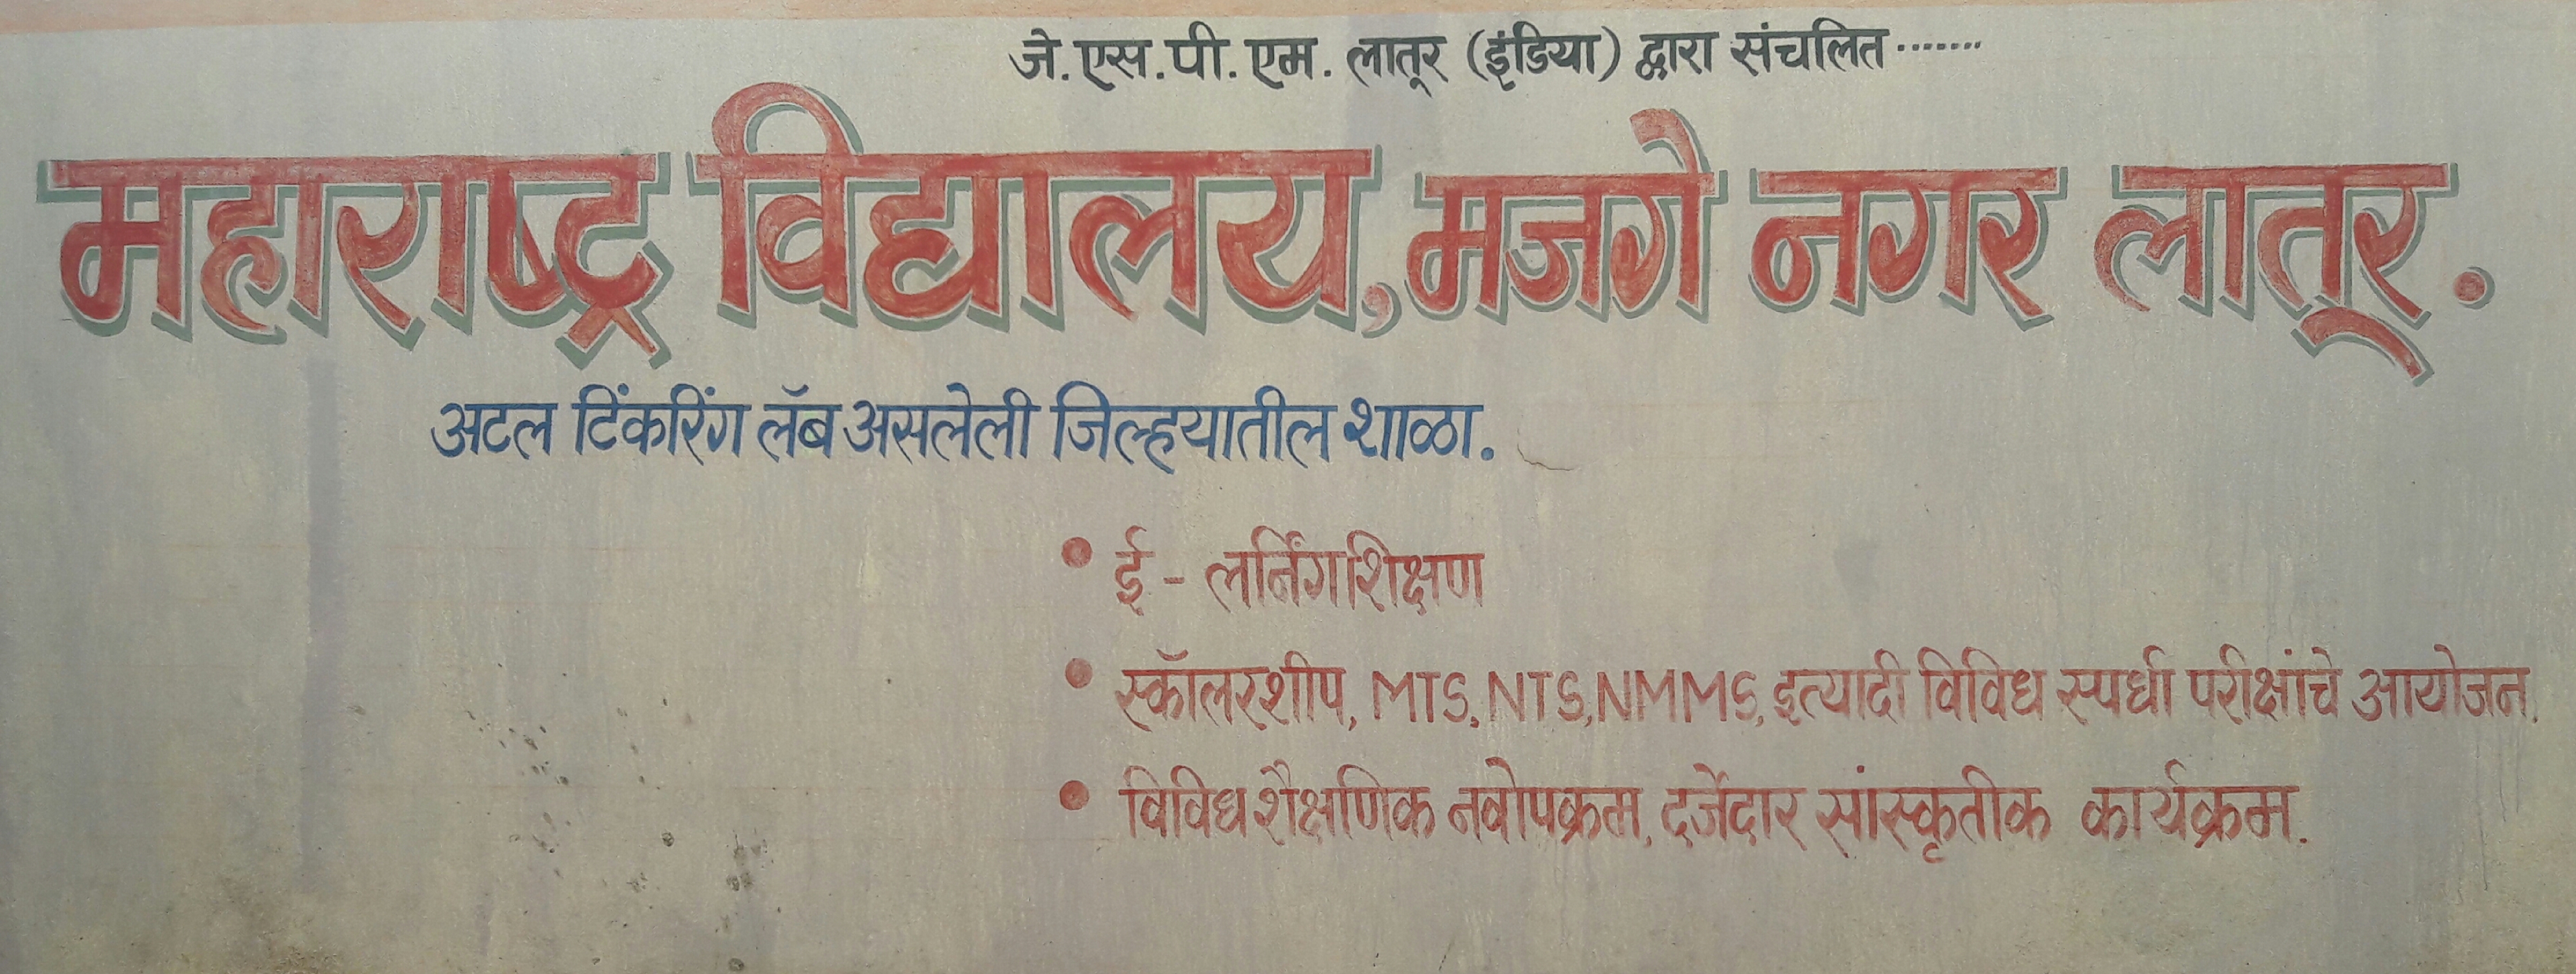 जे.एस.पी.एम. लातूर (इंडिया) द्वारा संचलित.......
महाराष्ट्र विद्यालय, मजगे नगर लातूर.
अटल टिंकरिंग लॅब असलेली जिल्हयातील शाळा.
• ई - लर्निंग शिक्षण
• स्कॉलरशीप, MTS, NTS, NMMS, इत्यादी विविध स्पर्धा परीक्षांचे आयोजन.
• विविध शैक्षणिक नवोपक्रम, दर्जेदार सांस्कृतीक कार्यक्रम.